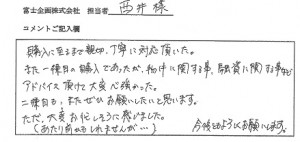 富士企画株式会社 担当者 西井 様
コメントご記入欄
購入に至るまで親切、丁寧に対応頂いた。
また一棟目の購入であったが、物件に関する事、融資に関する事など
アドバイス頂けて大変心強かった。
二棟目も、またぜひお願いしたいと思います。
ただ、大変お忙しそうに感じました。
(あたり前かもしれませんが…)
今後ともよろしくお願いします。